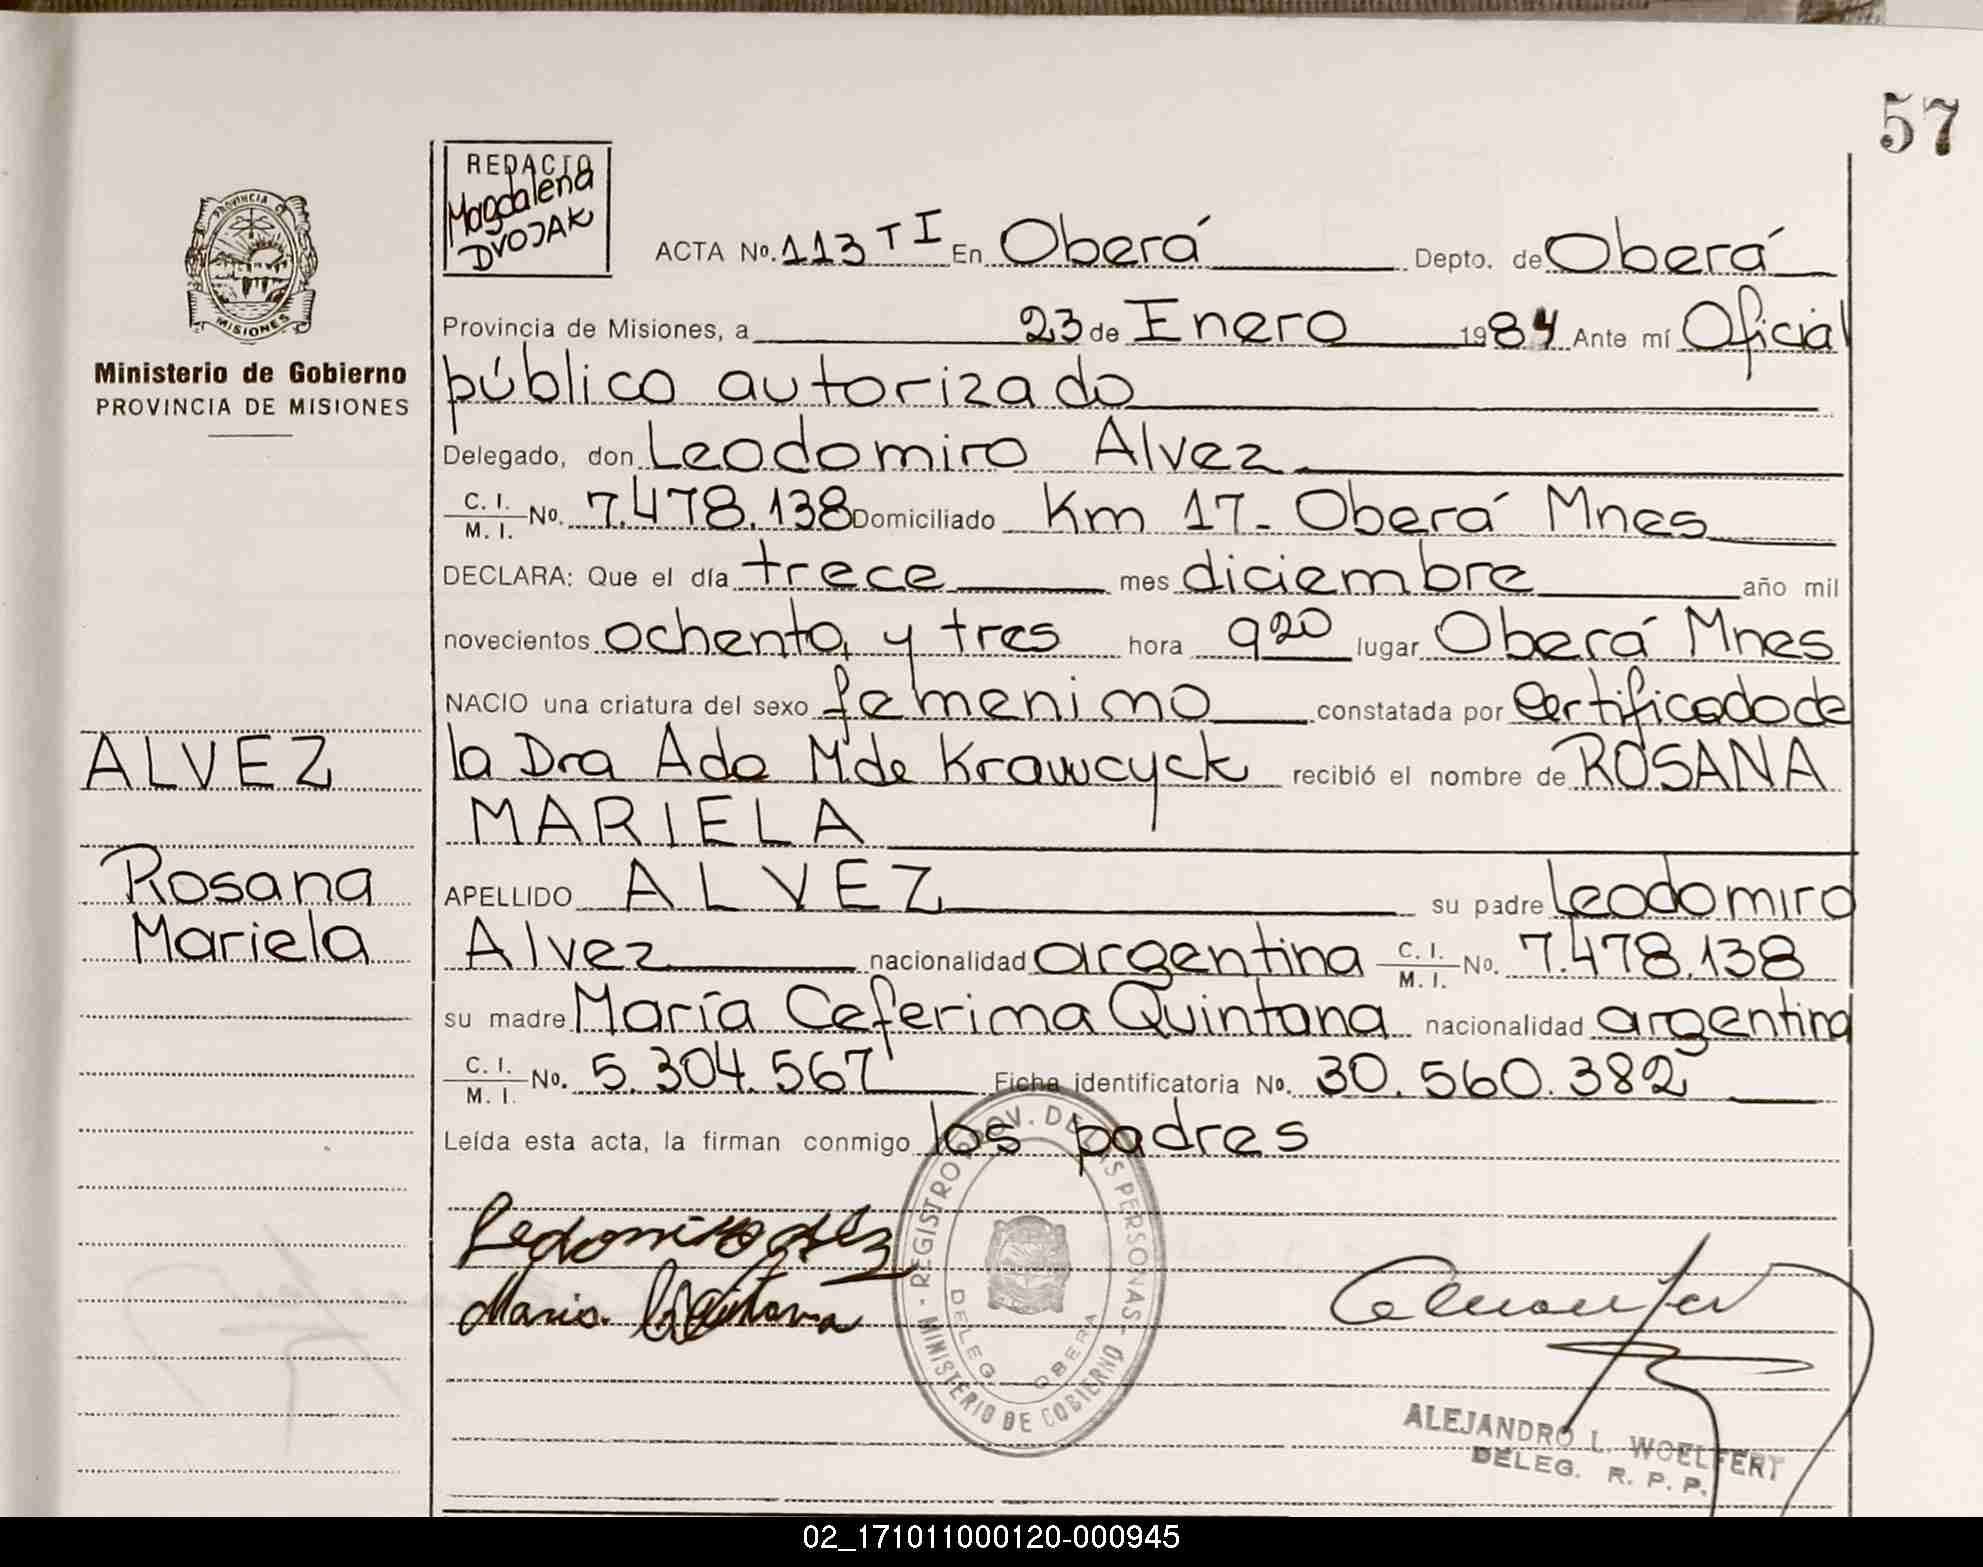 57
REDACTO
Magdalena
DVOJAK
PROVINCIA DE
MISIONES
Ministerio de Gobierno
PROVINCIA DE MISIONES
ACTA No. 113 T I En Oberá Depto. de Oberá
Provincia de Misiones, a 23 de Enero 1984 Ante mí Oficial
público autorizado
Delegado, don Leodomiro Alvez
C. I. / M. I. No. 7.478.138 Domiciliado Km 17- Oberá Mnes
DECLARA: Que el día trece mes diciembre año mil
novecientos ochenta y tres hora 9 20 lugar Oberá Mnes
NACIO una criatura del sexo femenino constatada por Certificado de
la Dra Ada M de Krawcyck recibió el nombre de ROSANA
MARIELA
APELLIDO ALVEZ su padre Leodomiro
Alvez nacionalidad argentina C. I. / M. I. No. 7.478.138
su madre María Ceferina Quintana nacionalidad argentina
C. I. / M. I. No. 5.304.567 Ficha identificatoria No. 30.560.382
Leída esta acta, la firman conmigo los padres
ALVEZ
Rosana
Mariela
REGISTRO PROV. DE LAS PERSONAS - MINISTERIO DE GOBIERNO -
DELEG. OBERA
Maria Quintana
ALEJANDRO L. WOELFERT
DELEG. R. P. P.
02_171011000120-000945